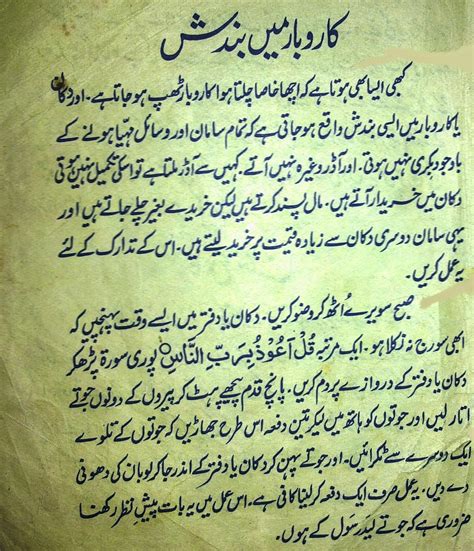 کاروبار میں بندش
کبھی ایسا بھی ہوتا ہے کہ اچھا خاصا چلتا ہوا کاروبار ٹھپ ہو جاتا ہے۔ اور دکان
یا کاروبار میں ایسی بندش واقع ہو جاتی ہے کہ تمام سامان اور وسائل مہیا ہونے کے
باوجود بکری نہیں ہوتی۔ اور آڈر وغیرہ نہیں آتے۔ کہیں سے آڈر ملتا ہے تو اسکی تکمیل نہیں ہوتی
دکان میں خریدار آتے ہیں۔ مال پسند کرتے ہیں لیکن خریدے بغیر چلے جاتے ہیں اور
یہی سامان دوسری دکان سے زیادہ قیمت پر خرید لیتے ہیں۔ اس کے تدارک کے لئے
یہ عمل کریں۔
صبح سویرے اُٹھ کر وضو کریں۔ دکان یا دفتر میں ایسے وقت پہنچیں کہ
ابھی سورج نہ نکلا ہو۔ ایک مرتبہ قُلْ اَعُوْذُ بِرَبِّ النَّاسِ ○ پوری سورۃ پڑھ کر
دکان یا دفتر کے دروازے پر دم کریں۔ پانچ قدم پیچھے ہٹ کر پیروں کے دونوں جوتے
اتار لیں اور جوتوں کو ہاتھ میں لیکر تین دفعہ اس طرح جھاڑیں کہ جوتوں کے تلوے
ایک دوسرے سے ٹکرائیں۔ اور جوتے پہن کر دکان یا دفتر کے اندر جا کر لوبان کی دھونی
دے دیں۔ یہ عمل صرف ایک دفعہ کر لینا کافی ہے۔ اس عمل میں یہ بات پیشِ نظر رکھنا
ضروری ہے کہ جوتے لیدر سول کے ہوں۔